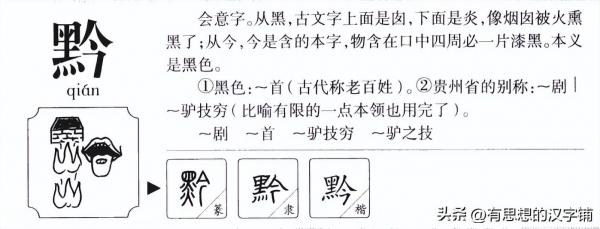 黔
qián
会意字。从黑,古文字上面是囱,下面是炎,像烟囱被火熏
黑了;从今,今是含的本字,物含在口中四周必一片漆黑。本义
是黑色。
①黑色:~首(古代称老百姓)。②贵州省的别称:~剧|
~驴技穷(比喻有限的一点本领也用完了)。
~剧 ~首 ~驴技穷 ~驴之技
黔 篆
黔 隶
黔 楷
头条 @有思想的汉字铺